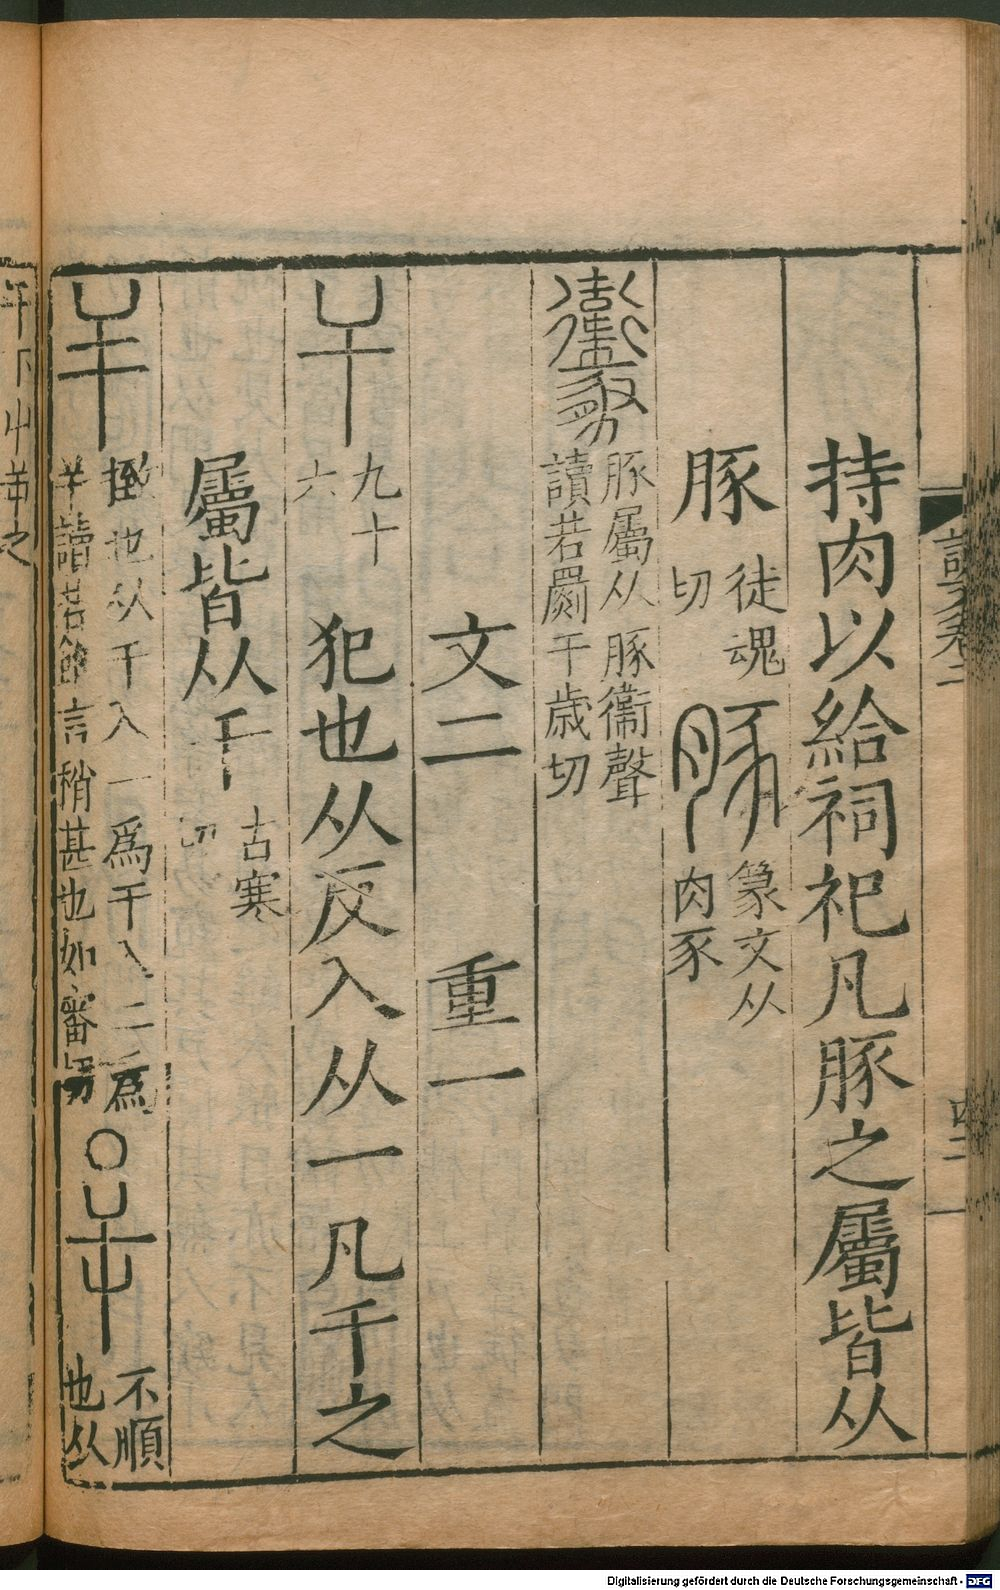 持肉以給祠祀凡豚之屬皆从
豚 徒魂切 豚 篆文从肉豕
豚屬从豚衞聲讀若罽于歲切
文二 重一
干 九十六 犯也从反入从一凡干之
屬皆从干 古寒切
𢆉 撴也从干入一爲干入二爲𢆉讀若飪言稍甚也如審切 ○ 屰 不順也从
干下屮屰之
Digitalisierung gefördert durch die Deutsche Forschungsgemeinschaft - DFG